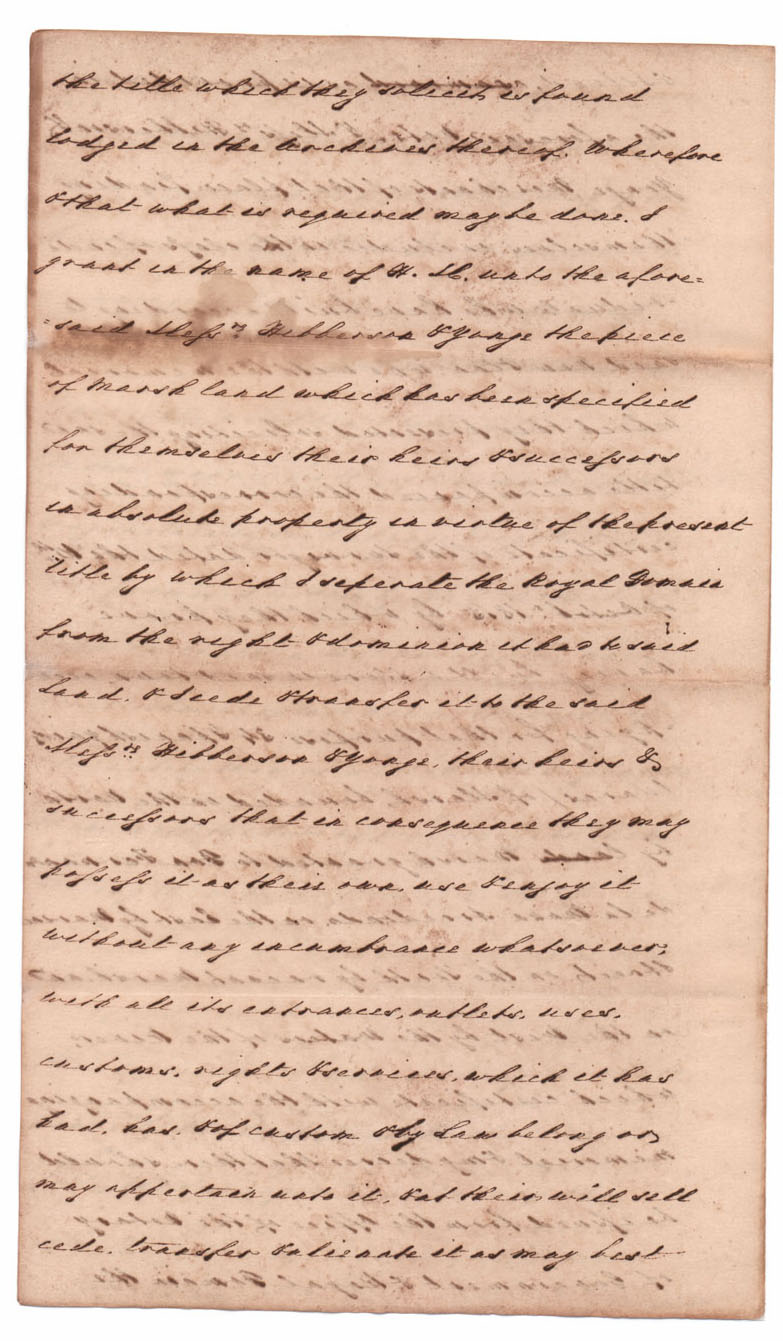 the title which they solicit, is found
lodged in the Archives thereof. Wherefore
& that what is required may be done. I
grant in the name of H. M. unto the afore=
=said Mess.rs Hibberson & Yonge the piece
of Marsh land which has been specified
for themselves their heirs & successors
in absolute property in virtue of the present
title by which I seperate the Royal Domain
from the right & dominion it had to said
Land. & I cede & transfer it to the said
Mess.rs Hibberson & Yonge, their heirs &
successors that in consequence they may
possess it as their own, use & enjoy it
without any incumbrance whatsoever,
with all its entrances, outlets, uses,
customs, rights & services, which it has
had, has, & of custom & by Law belong or
may appertain unto it, & at their will sell
cede, transfer & alienate it as may best